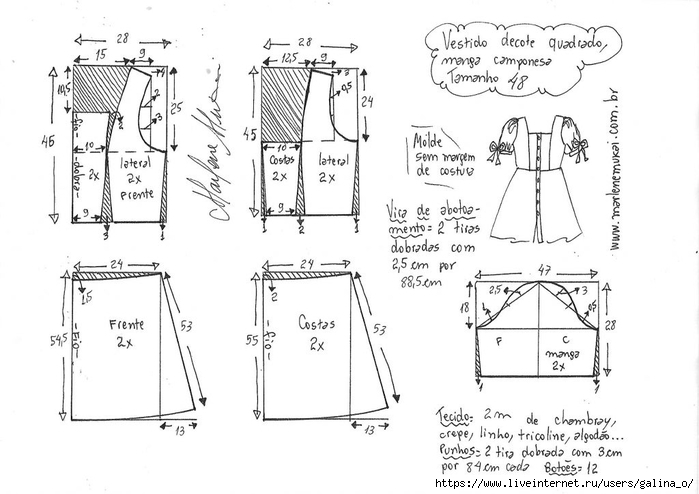 Vestido decote quadrado,
manga camponesa
Tamanho 48
28
15
9
4
10,5
2
3
25
45
-fio-
-dobra-
10
2x
lateral
2x
frente
9
3
1
28
12,5
9
3
0,5
24
45
10
costas
2x
lateral
2x
9
1
2
1
Molde
sem margem
de costura
Vira de abotoa-
mento= 2 tiras
dobradas com
2,5 cm por
88,5 cm
www.marlenemukai.com.br
24
1,5
54,5
-fio-
Frente
2x
53
13
24
2
55
-fio-
Costas
2x
53
13
47
2,5
3
1
0,5
18
28
F
C
manga
2x
1
1
Tecido= 2 m de chambray,
crepe, linho, tricoline, algodão...
Punhos= 2 tira dobrada com 3 cm
por 84 cm cada Botões= 12
https://www.liveinternet.ru/users/galina_o/